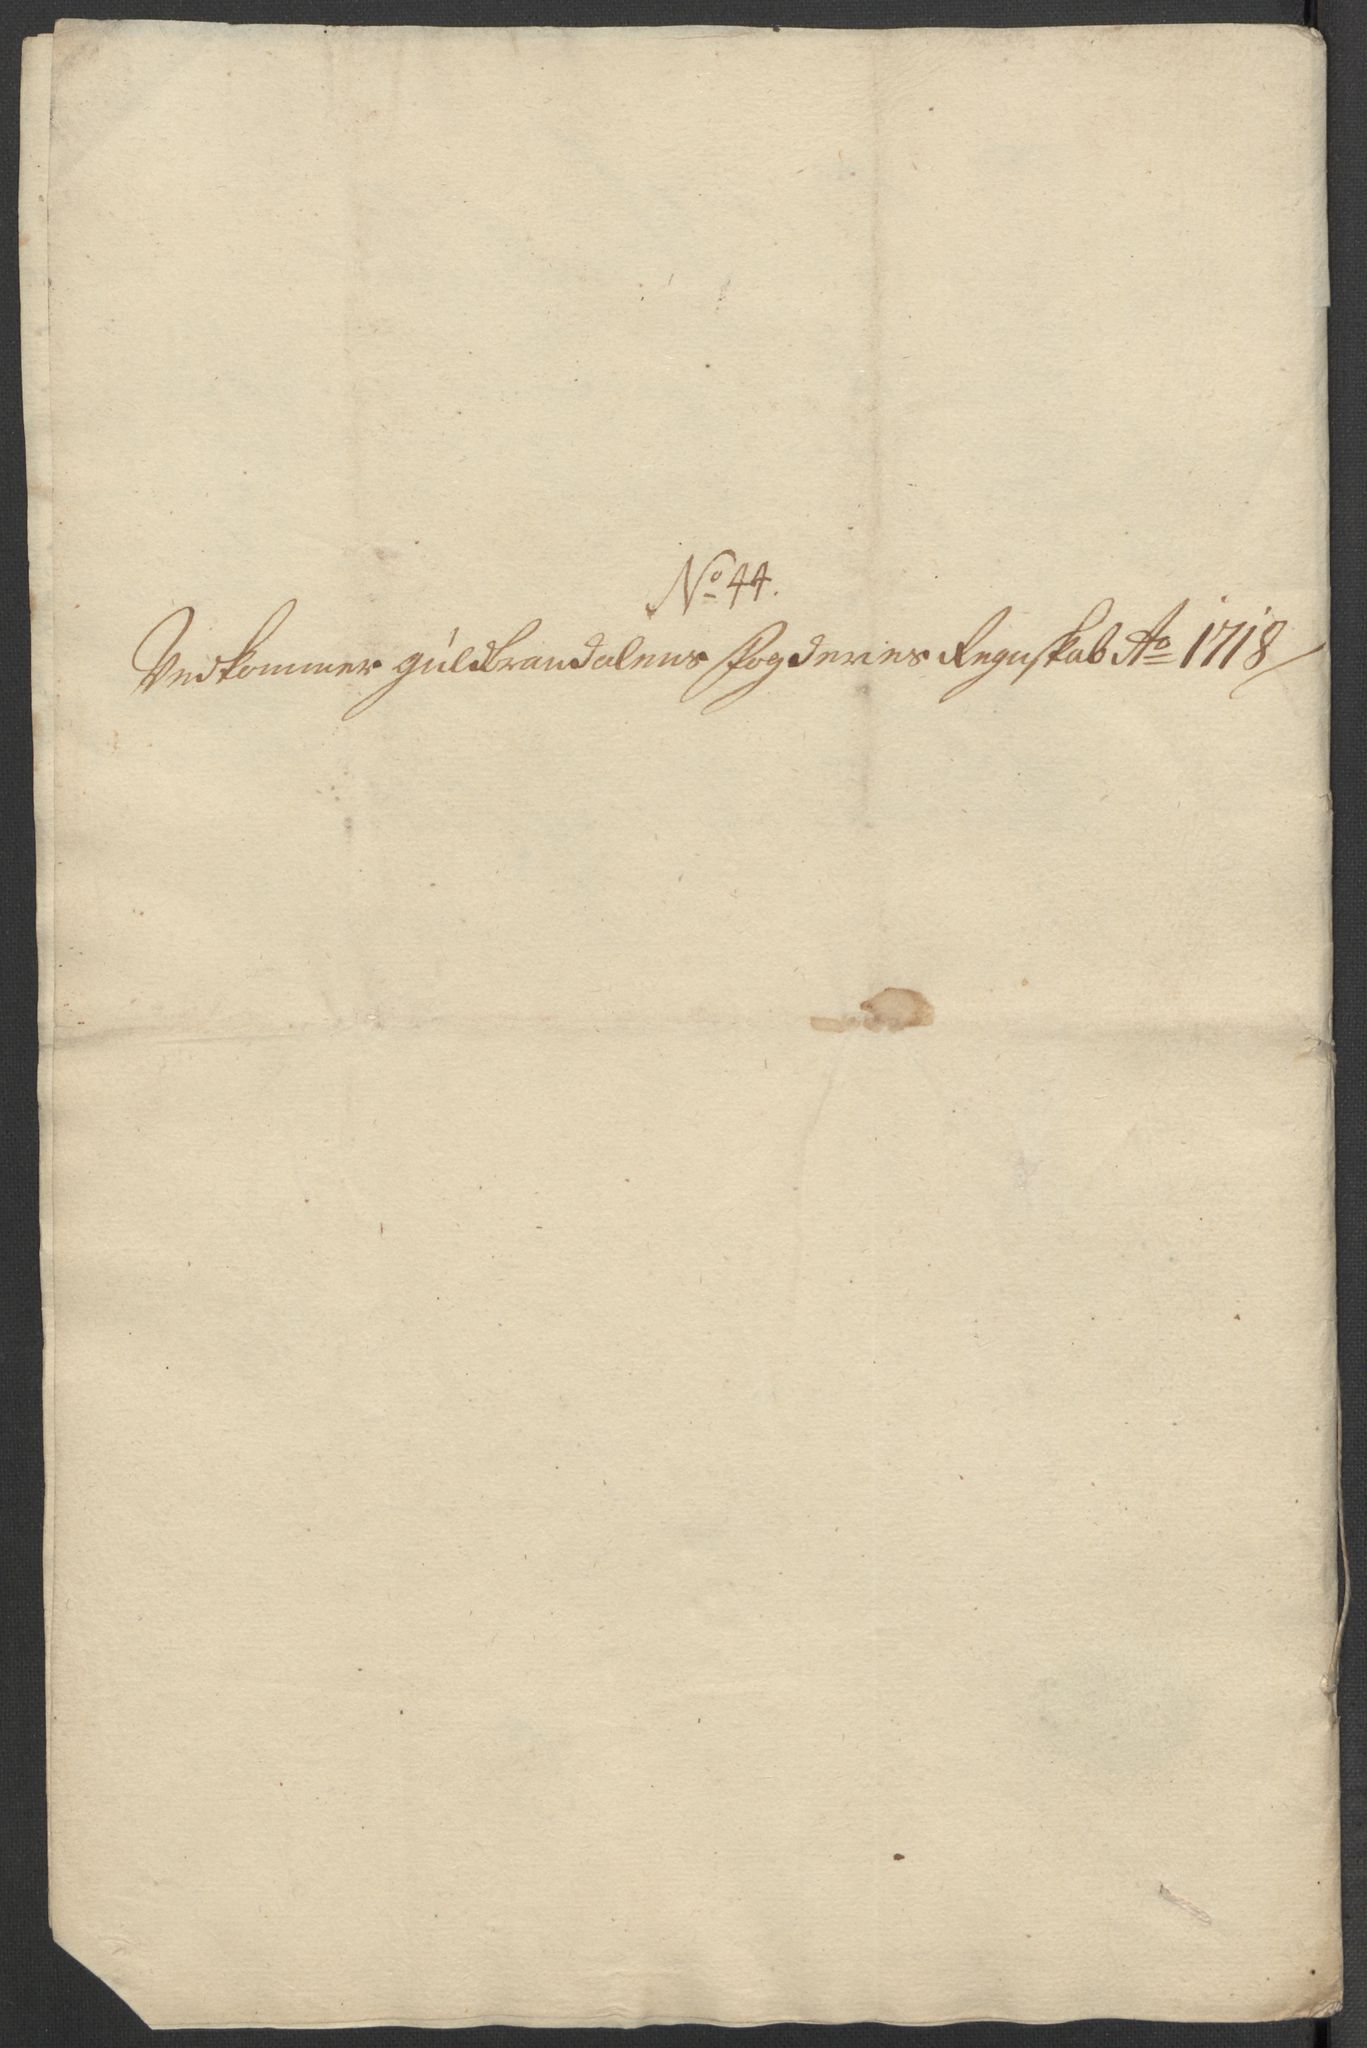 No 44.
Vedkommer guldbrandalens Fogderies Regnskab Ao 1718